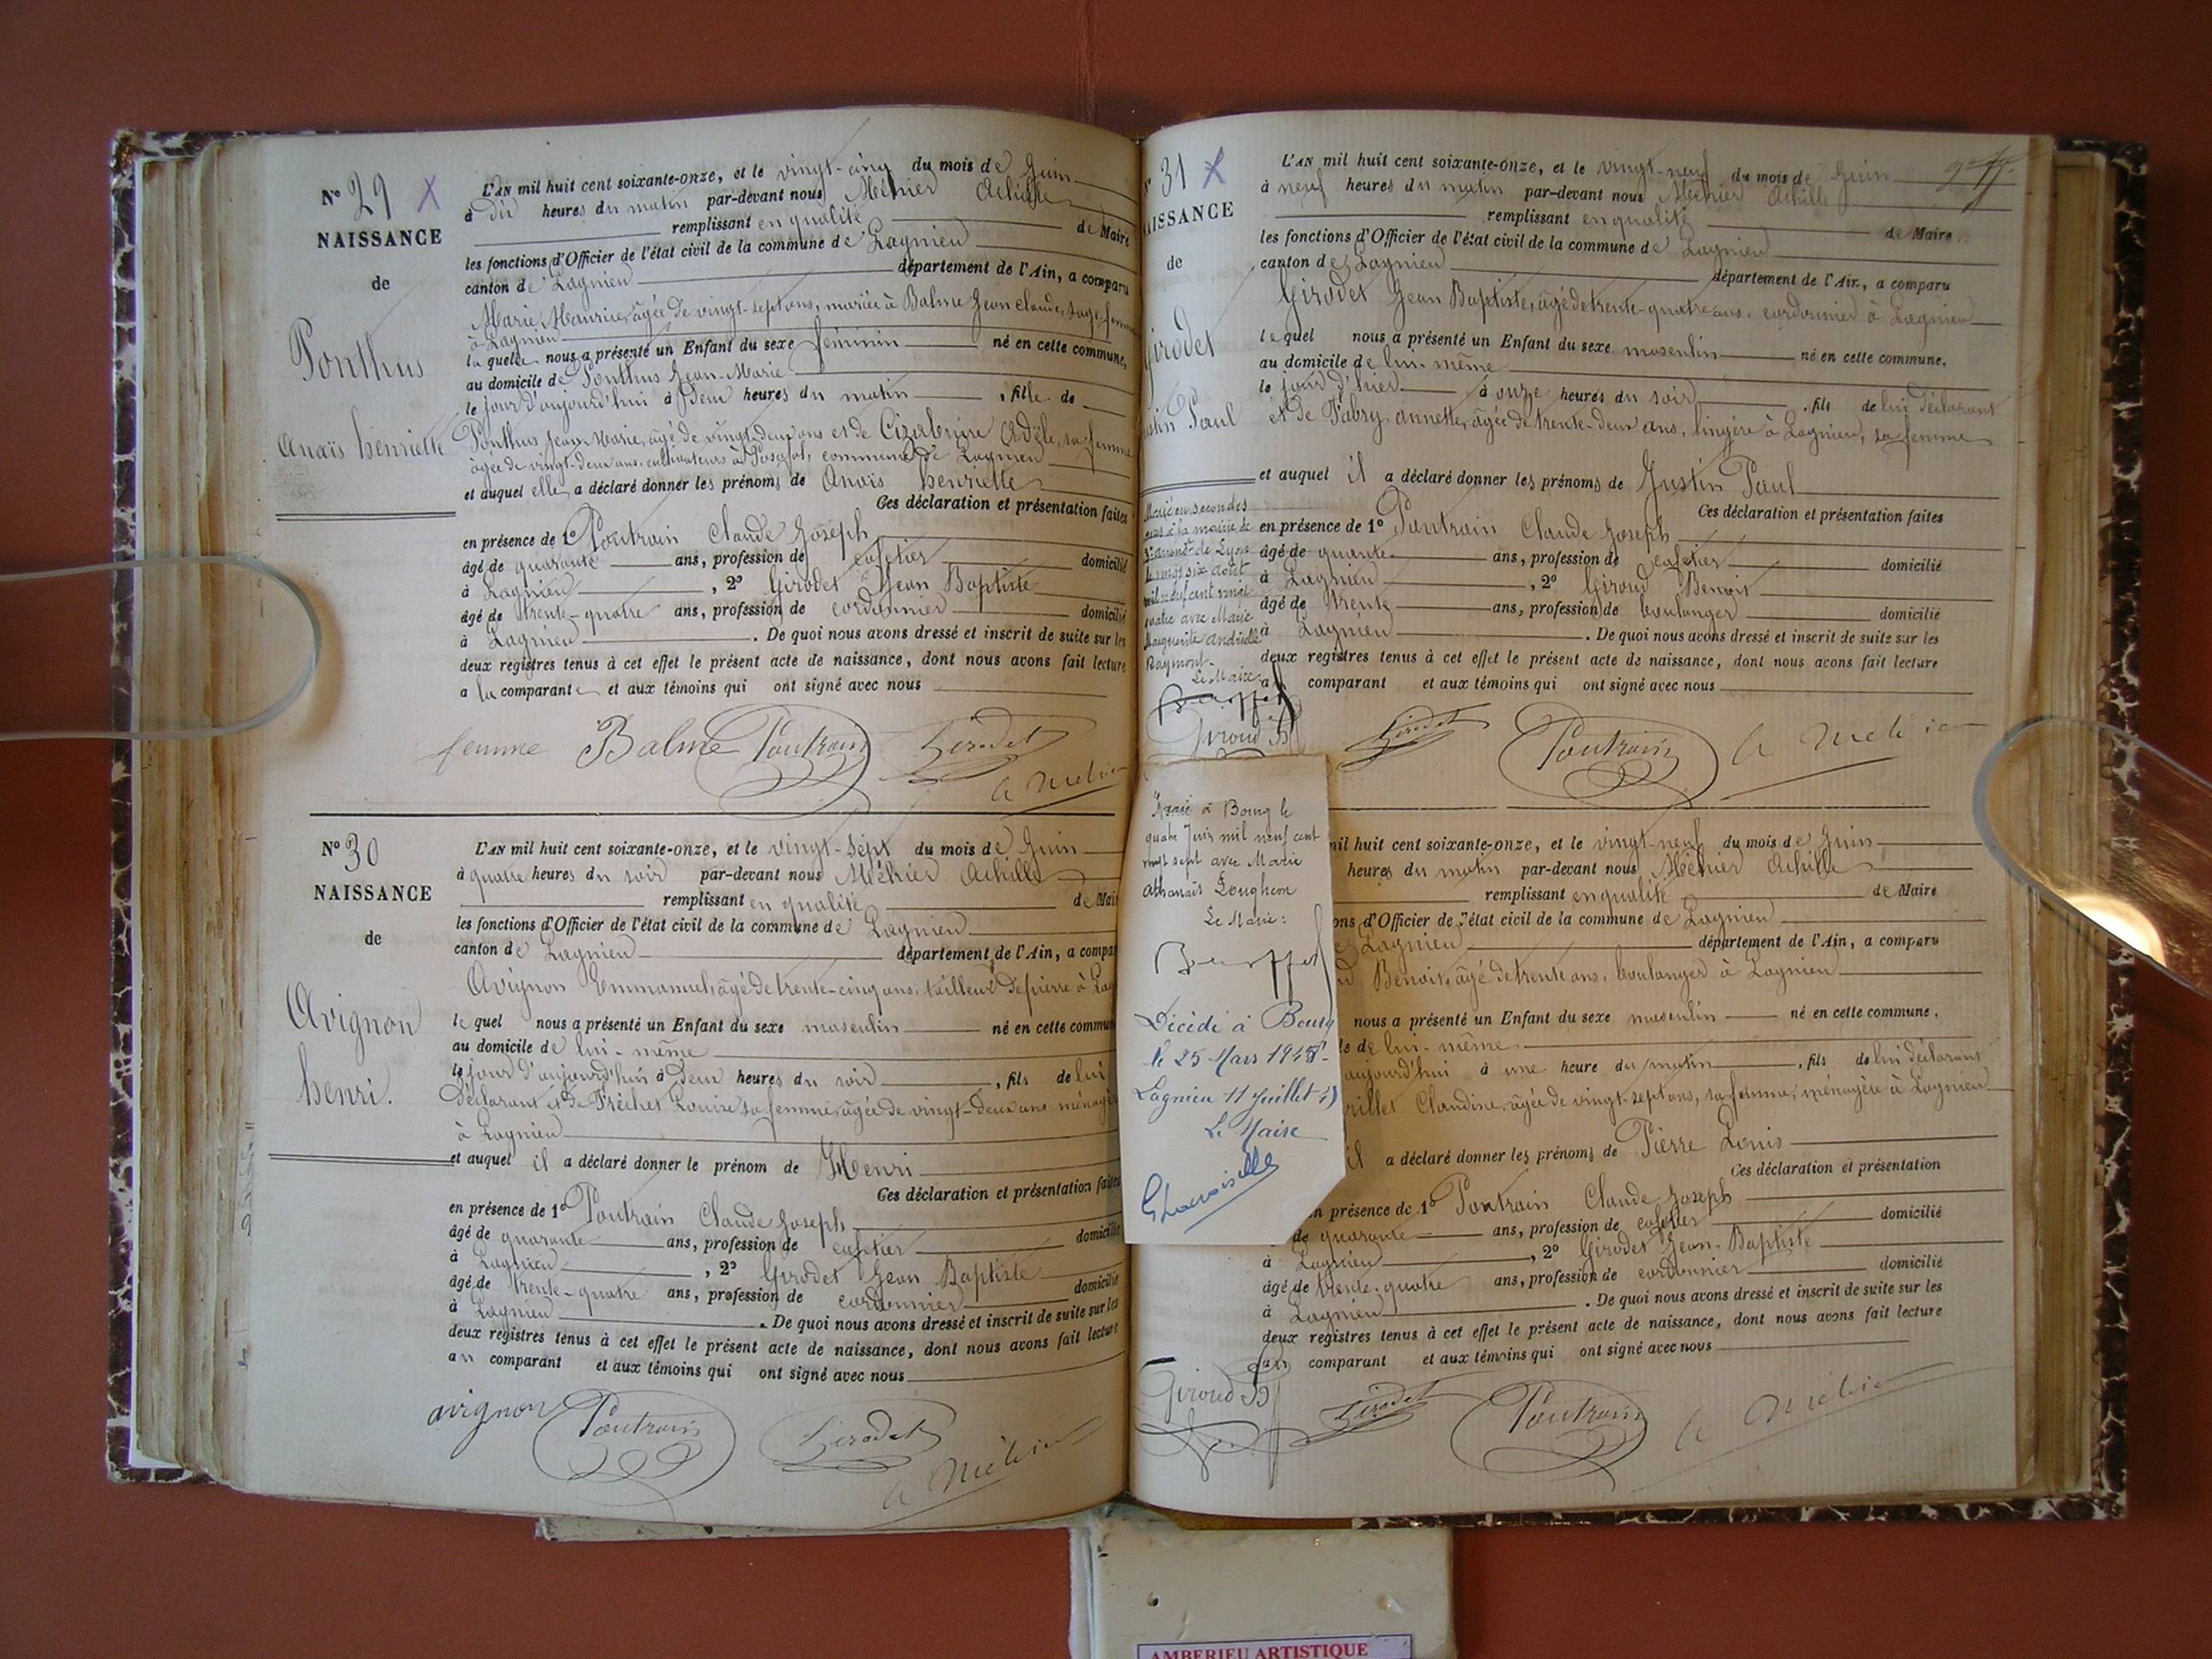 N° 29 X
NAISSANCE
de
Ponthus
Anaïs henriette
L'AN mil huit cent soixante-onze, et le vingt-cinq du mois de Juin
à dix heures du matin par-devant nous Méhier Achille
remplissant en qualité de Maire
les fonctions d'Officier de l'état civil de la commune de Lagnieu
canton de Lagnieu département de l'Ain, a comparu
Marie Maurice, âgée de vingt-sept ans, mariée à Balme Jean Claude, sage femme
à Lagnieu
la quelle nous a présenté un Enfant du sexe féminin né en cette commune,
au domicile de Ponthus Jean-Marie
le jour d'aujourd'hui à deux heures du matin, fille de
Ponthus Jean-Marie, âgé de vingt-deux ans et de Adèle, sa femme
âgée de vingt-deux ans, cultivateurs à commune de Lagnieu
et auquel elle a déclaré donner les prénoms de Anaïs henriette
Ces déclaration et présentation faites
en présence de 1° Poutrain Claude Joseph
âgé de quarante ans, profession de cafetier domicilié
à Lagnieu, 2° Girodet Jean Baptiste
âgé de trente-quatre ans, profession de cordonnier domicilié
à Lagnieu. De quoi nous avons dressé et inscrit de suite sur les
deux registres tenus à cet effet le présent acte de naissance, dont nous avons fait lecture
a la comparante et aux témoins qui ont signé avec nous
femme Balme Poutrain Girodet
A Méhier
N° 30
NAISSANCE
de
Avignon
henri.
L'AN mil huit cent soixante-onze, et le vingt-sept du mois de Juin
à quatre heures du soir par-devant nous Méhier Achille
remplissant en qualité de Mai
les fonctions d'Officier de l'état civil de la commune de Lagnieu
canton de Lagnieu département de l'Ain, a compar
Avignon Emmanuel, âgé de trente-cinq ans, tailleur de pierre à Lag
le quel nous a présenté un Enfant du sexe masculin né en cette commun
au domicile de lui-même
le jour d'aujourd'hui à deux heures du soir, fils de lui
déclarant et de Tréchet Louise sa femme, âgée de vingt-deux ans ménagère
à Lagnieu
et auquel il a déclaré donner le prénom de Henri
Ces déclaration et présentation faites
en présence de 1° Poutrain Claude Joseph
âgé de quarante ans, profession de cafetier domicilié
à Lagnieu, 2° Girodet Jean Baptiste
âgé de trente-quatre ans, profession de cordonnier domicilié
à Lagnieu. De quoi nous avons dressé et inscrit de suite sur les
deux registres tenus à cet effet le présent acte de naissance, dont nous avons fait lecture
au comparant et aux témoins qui ont signé avec nous
avignon Poutrain Girodet
A Méhier
31 X
AISSANCE
de
Girodet
Justin Paul
L'AN mil huit cent soixante-onze, et le vingt-neuf du mois de Juin
à neuf heures du matin par-devant nous Méhier Achille
remplissant en qualité de Maire
les fonctions d'Officier de l'état civil de la commune de Lagnieu
canton de Lagnieu département de l'Ain, a comparu
Girodet Jean Baptiste, âgé de trente-quatre ans, cordonnier à Lagnieu
le quel nous a présenté un Enfant du sexe masculin né en cette commune.
au domicile de lui-même
le jour d'hier à onze heures du soir, fils de lui déclarant
et de Fabry annette, âgée de trente-deux ans, lingère à Lagnieu, sa femme
et auquel il a déclaré donner les prénoms de Justin Paul
Ces déclaration et présentation faites
en présence de 1° Poutrain Claude Joseph
âgé de quarante ans, profession de cafetier domicilié
à Lagnieu, 2° Giroud Benoit
âgé de trente ans, profession de boulanger domicilié
à Lagnieu. De quoi nous avons dressé et inscrit de suite sur les
deux registres tenus à cet effet le présent acte de naissance, dont nous avons fait lecture
au comparant et aux témoins qui ont signé avec nous
Marié en secondes
noces à la mairie de
de Lyon
le vingt six août
mil neuf cent vingt
quatre avec Marie
Marguerite
Raymont.
Le Maire
Giroud B Girodet Poutrain A Méhier
Marié à Bourg le
quatre Juin mil neuf cent
vingt sept avec Marie
Athanaïs
Le Maire:
Décédé à Bourg
le 25 Mars
Lagnieu 11 Juillet
Le Maire
mil huit cent soixante-onze, et le vingt-neuf du mois de Juin
heures du matin par-devant nous Méhier Achille
remplissant en qualité de Maire
ons d'Officier de l'état civil de la commune de Lagnieu
de Lagnieu département de l'Ain, a comparu
Benoit, âgé de trente ans, boulanger à Lagnieu
nous a présenté un Enfant du sexe masculin né en cette commune.
de lui-même
aujourd'hui à une heure du matin, fils de lui déclarant
Claudine, âgée de vingt-sept ans, sa femme, ménagère à Lagnieu
il a déclaré donner les prénoms de Pierre Louis
Ces déclaration et présentation
en présence de 1° Poutrain Claude Joseph
de quarante ans, profession de cafetier domicilié
à Lagnieu, 2° Girodet Jean-Baptiste
âgé de trente-quatre ans, profession de cordonnier domicilié
à Lagnieu. De quoi nous avons dressé et inscrit de suite sur les
deux registres tenus à cet effet le présent acte de naissance, dont nous avons fait lecture
au comparant et aux témoins qui ont signé avec nous
Giroud B Girodet Poutrain A Méhier
AMBERIEU ARTISTIQUE